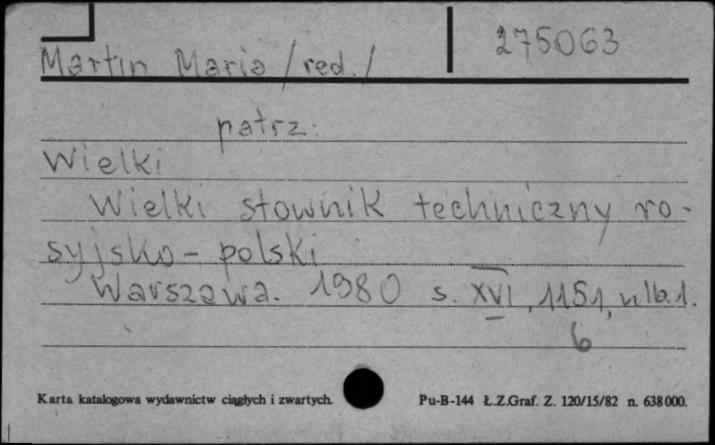 275063
Martin Maria /red./
patrz:
Wielki
Wielki słownik techniczny ro-
syjsko-polski
Warszawa. 1980 s. XVI, 1151, nlb. 1.
6
Karta katalogowa wydawnictw ciągłych i zwartych. Pu-B-144 Ł.Z.Graf. Z. 120/15/82 n. 638000.